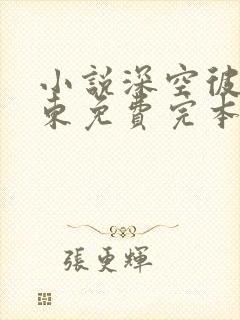 小說深空彼
東免費完本
張更輝